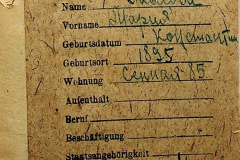 Name
Vorname Мария
Geburtsdatum
Geburtsort 1895
Wohnung Сенная 85
Aufenthalt
Beruf
Beschäftigung
Staatsangehörigkeit